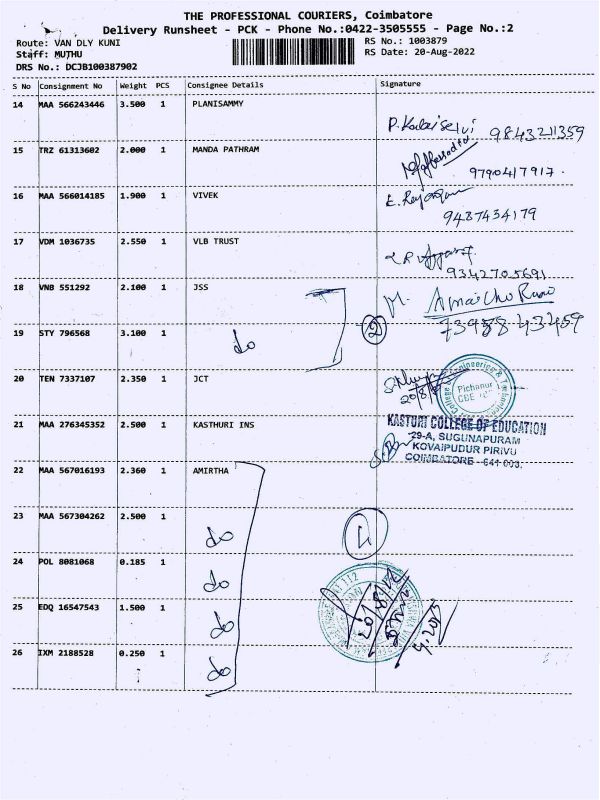 THE PROFESSIONAL COURIERS, Coimbatore
Delivery Runsheet - PCK - Phone No.:0422-3505555 - Page No.:2
Route: VAN DLY KUNI
RS No.: 1003879
Staff: MUTHU
RS Date: 20-Aug-2022
DRS No.: DCJB100387902
S No Consignment No Weight PCS Consignee Details Signature
14 MAA 566243446 3.500 1 PLANISAMMY
9843211359
15 TRZ 61313602 2.000 1 MANDA PATHRAM
9790417917.
16 MAA 566014185 1.900 1 VIVEK
9487434179
17 VDM 1036735 2.550 1 VLB TRUST
9342705691
18 VNB 551292 2.100 1 JSS
19 STY 796568 3.100 1 do 2
20 TEN 7337107 2.350 1 JCT
Pichanur
21 MAA 276345352 2.500 1 KASTHURI INS
KASTURI COLLEGE OF EDUCATION
29-A, SUGUNAPURAM
KOVAIPUDUR PIRIVU
COIMBATORE - 641 003.
22 MAA 567016193 2.360 1 AMIRTHA
23 MAA 567304262 2.500 1 do
24 POL 8081068 0.185 1 do
25 EDQ 16547543 1.500 1 do
26 IXM 2188528 0.250 1 do